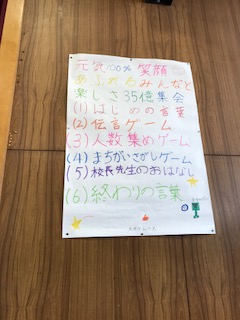 元気100% 笑顔
あふれるみんなと
楽しさ35億集会
(1)はじめの言葉
(2)伝言ゲーム
(3)人数集めゲーム
(4)まちがいさがしゲーム
(5)校長先生のおはなし
(6)終わりの言葉